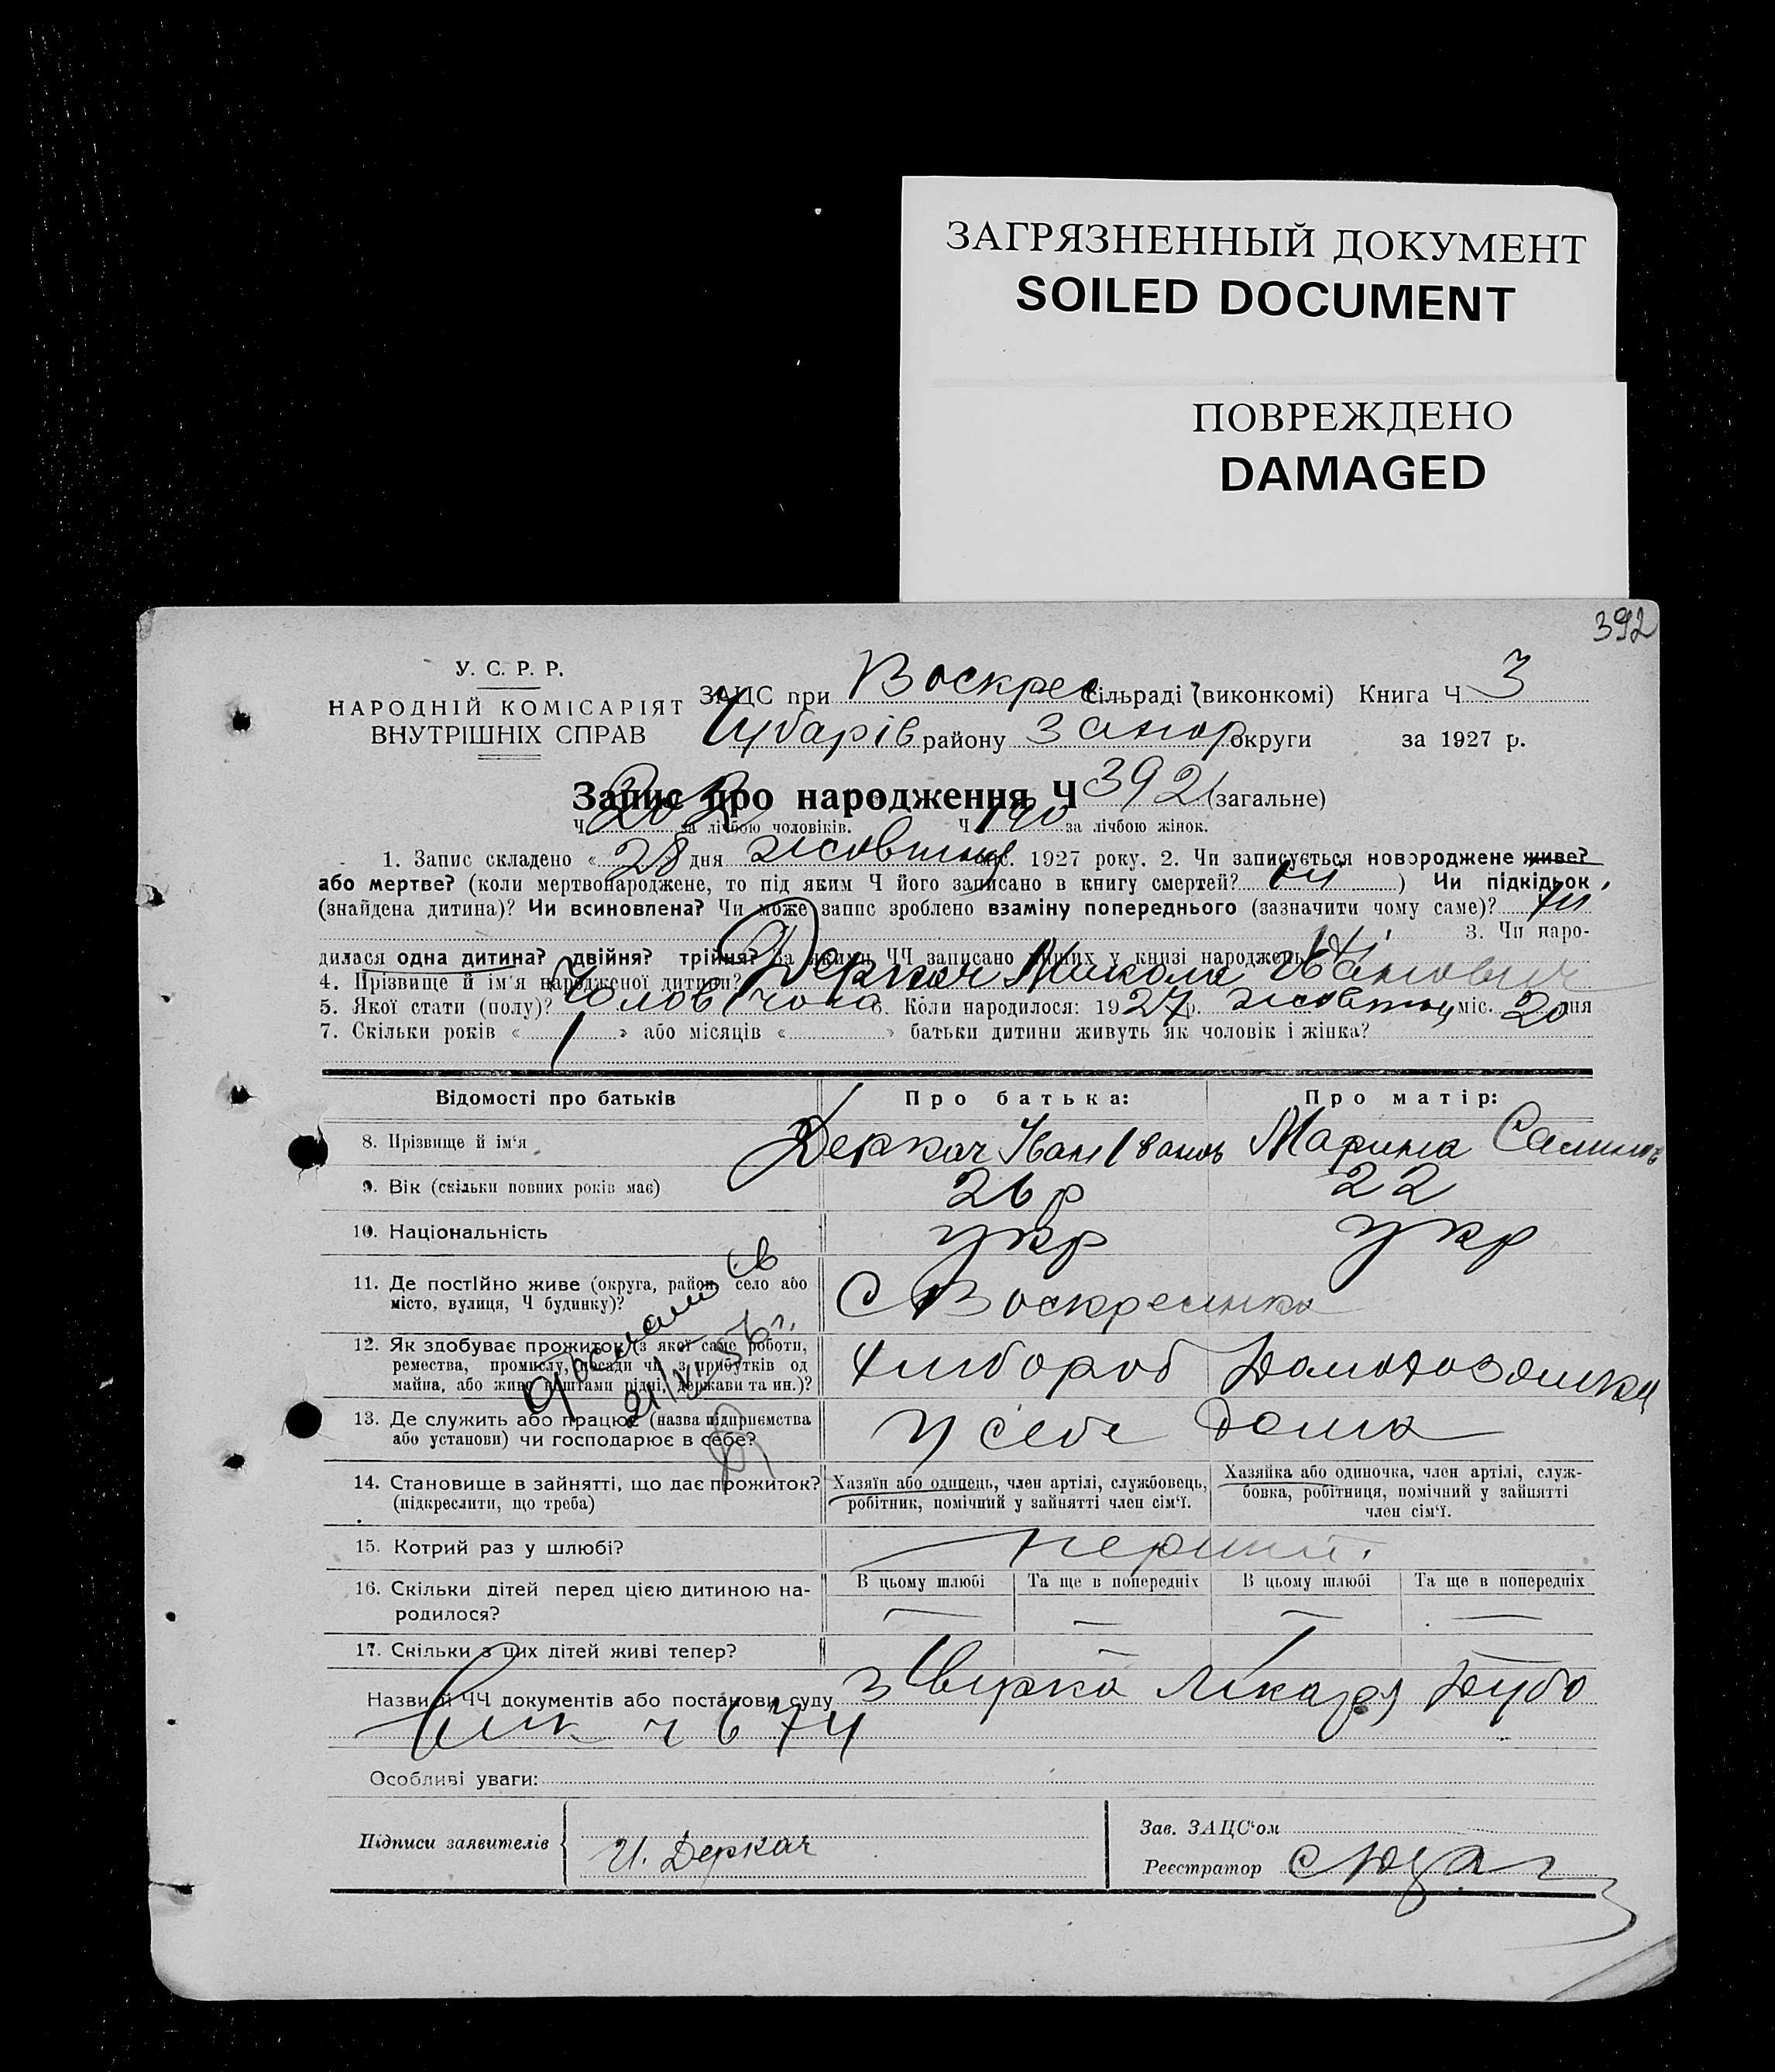 ЗАГРЯЗНЕННЫЙ ДОКУМЕНТ
SOILED DOCUMENT
ПОВРЕЖДЕНО
DAMAGED
392
У. С. Р. Р.
НАРОДНІЙ КОМІСАРІЯТ
ВНУТРІШНІХ СПРАВ
ЗАЦС при Воскрес сільраді (виконкомі) Книга Ч 3
Чубарів району Запор округи за 1927 р.
Запис про народження Ч 392 (загальне)
Ч 202 за лічбою чоловіків. Ч 190 за лічбою жінок.
1. Запис складено « 28 » дня жовтня міс. 1927 року. 2. Чи записується новороджене живе?
або мертве? (коли мертвонароджене, то під яким Ч його записано в книгу смертей? ні ) Чи підкідьок,
(знайдена дитина)? Чи всиновлена? Чи може запис зроблено взаміну попереднього (зазначити чому саме)? ні
3. Чи наро-
дилася одна дитина? двійня? трійня? За якими ЧЧ записано інших у книзі народжень ні
4. Прізвище й ім'я народженої дитини? Деркач Микола Іванович
5. Якої стати (полу)? Чоловічої 6. Коли народилося: 1927 р. жовтня міс. 20 дня
7. Скільки років « 1 » або місяців « » батьки дитини живуть як чоловік і жінка?
Відомості про батьків Про батька: Про матір:
8. Прізвище й ім'я Деркач Іван Іванов Марина
9. Вік (скільки повних років має) 26 р 22
10. Національність укр укр
11. Де постійно живе (округа, район, село або
місто, вулиця, Ч будинку)? С Воскресинка
12. Як здобуває прожиток (з якої саме роботи,
ремества, промислу, посади чи з прибутків од
майна, або живе коштами рідні, держави та ин.)? Хлібороб Домогозяйка
13. Де служить або працює (назва підприємства
або установи) чи господарює в себе? У себе дома
14. Становище в зайнятті, що дає прожиток?
(підкреслити, що треба)
Хазяїн або одинець, член артілі, службовець,
робітник, помічний у зайнятті член сім'ї.
Хазяйка або одиночка, член артілі, служ-
бовка, робітниця, помічний у зайнятті
член сім'ї.
15. Котрий раз у шлюбі? перший.
16. Скільки дітей перед цією дитиною на-
родилося?
В цьому шлюбі Та ще в попередніх В цьому шлюбі Та ще в попередніх
17. Скільки з цих дітей живі тепер?
Назви й ЧЧ документів або постанови суду Лікаря
ч 674
Особливі уваги:
Підписи заявителів И. Деркач
Зав. ЗАЦС'ом
Реєстратор